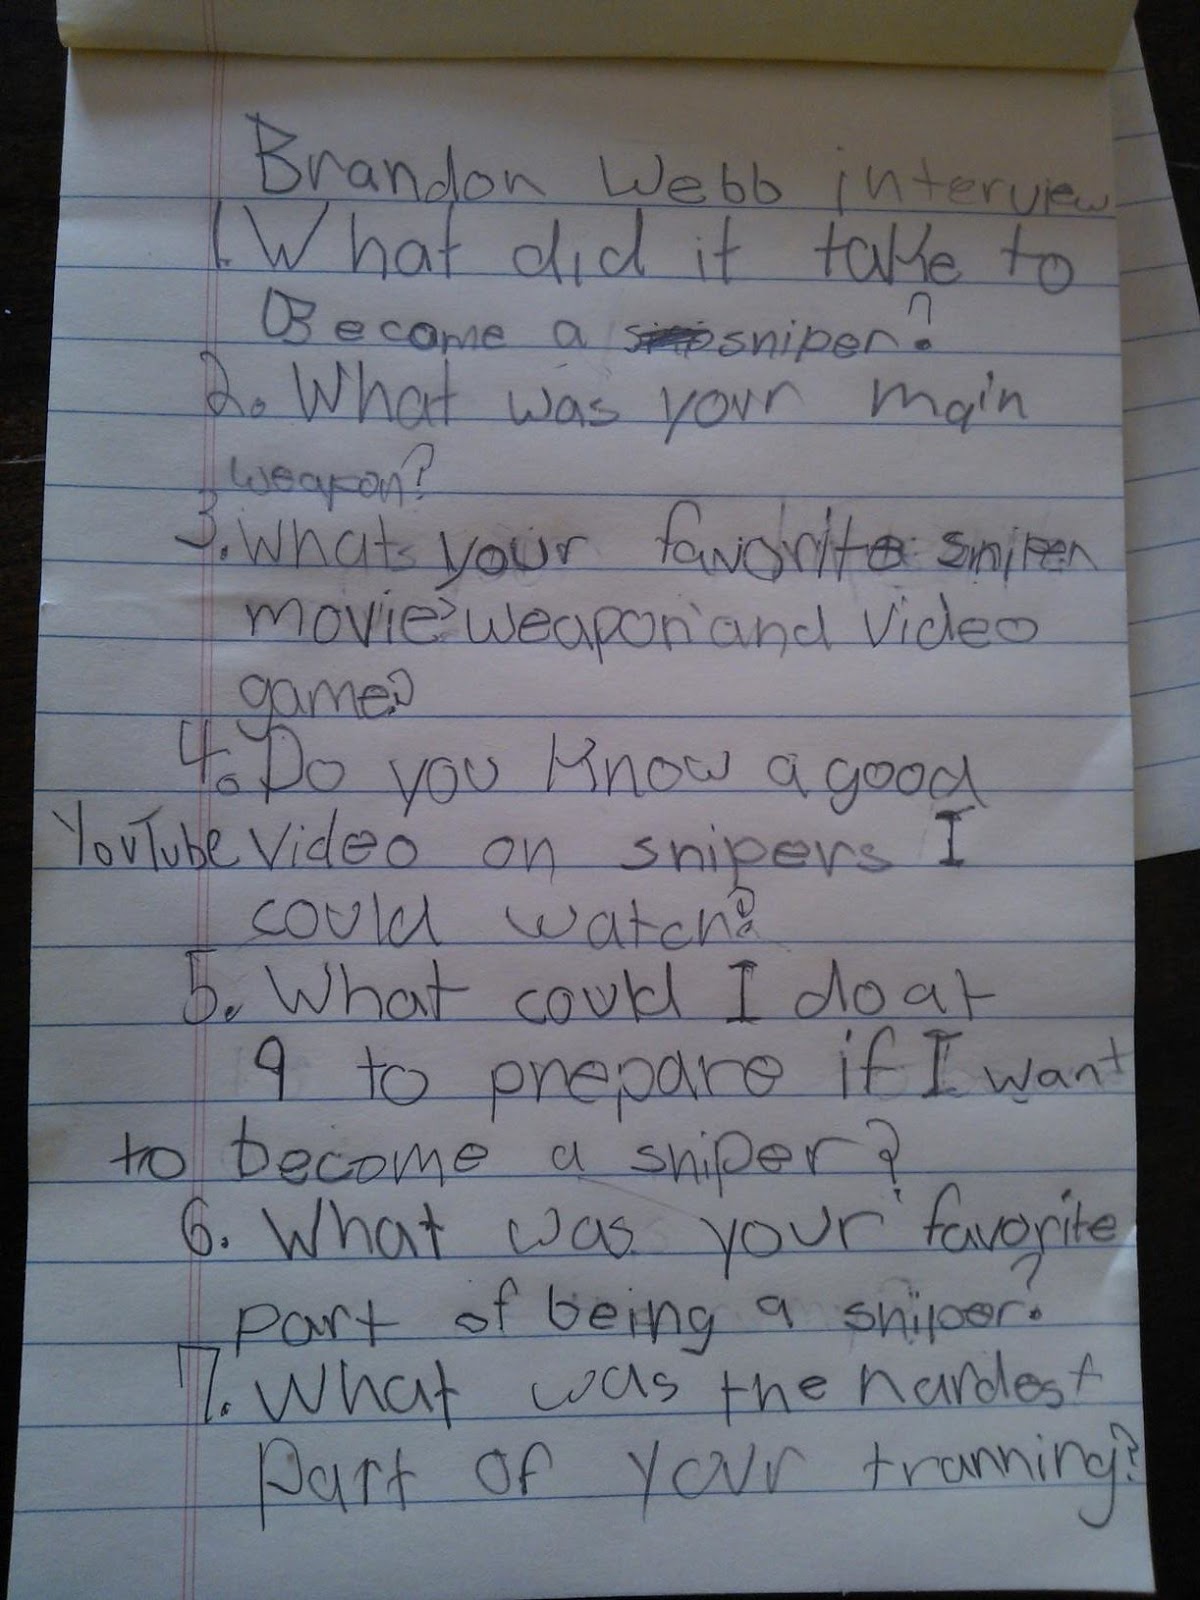 Brandon Webb interview
1. What did it take to
Become a sniper?
2. What was your main
weapon?
3. Whats your favorite sniper
movie? weapon and video
game?
4. Do you know a good
YouTube video on snipers I
could watch?
5. What could I do at
9 to prepare if I want
to become a sniper?
6. What was your favorite
part of being a sniper?
7. What was the hardest
part of your tranning?